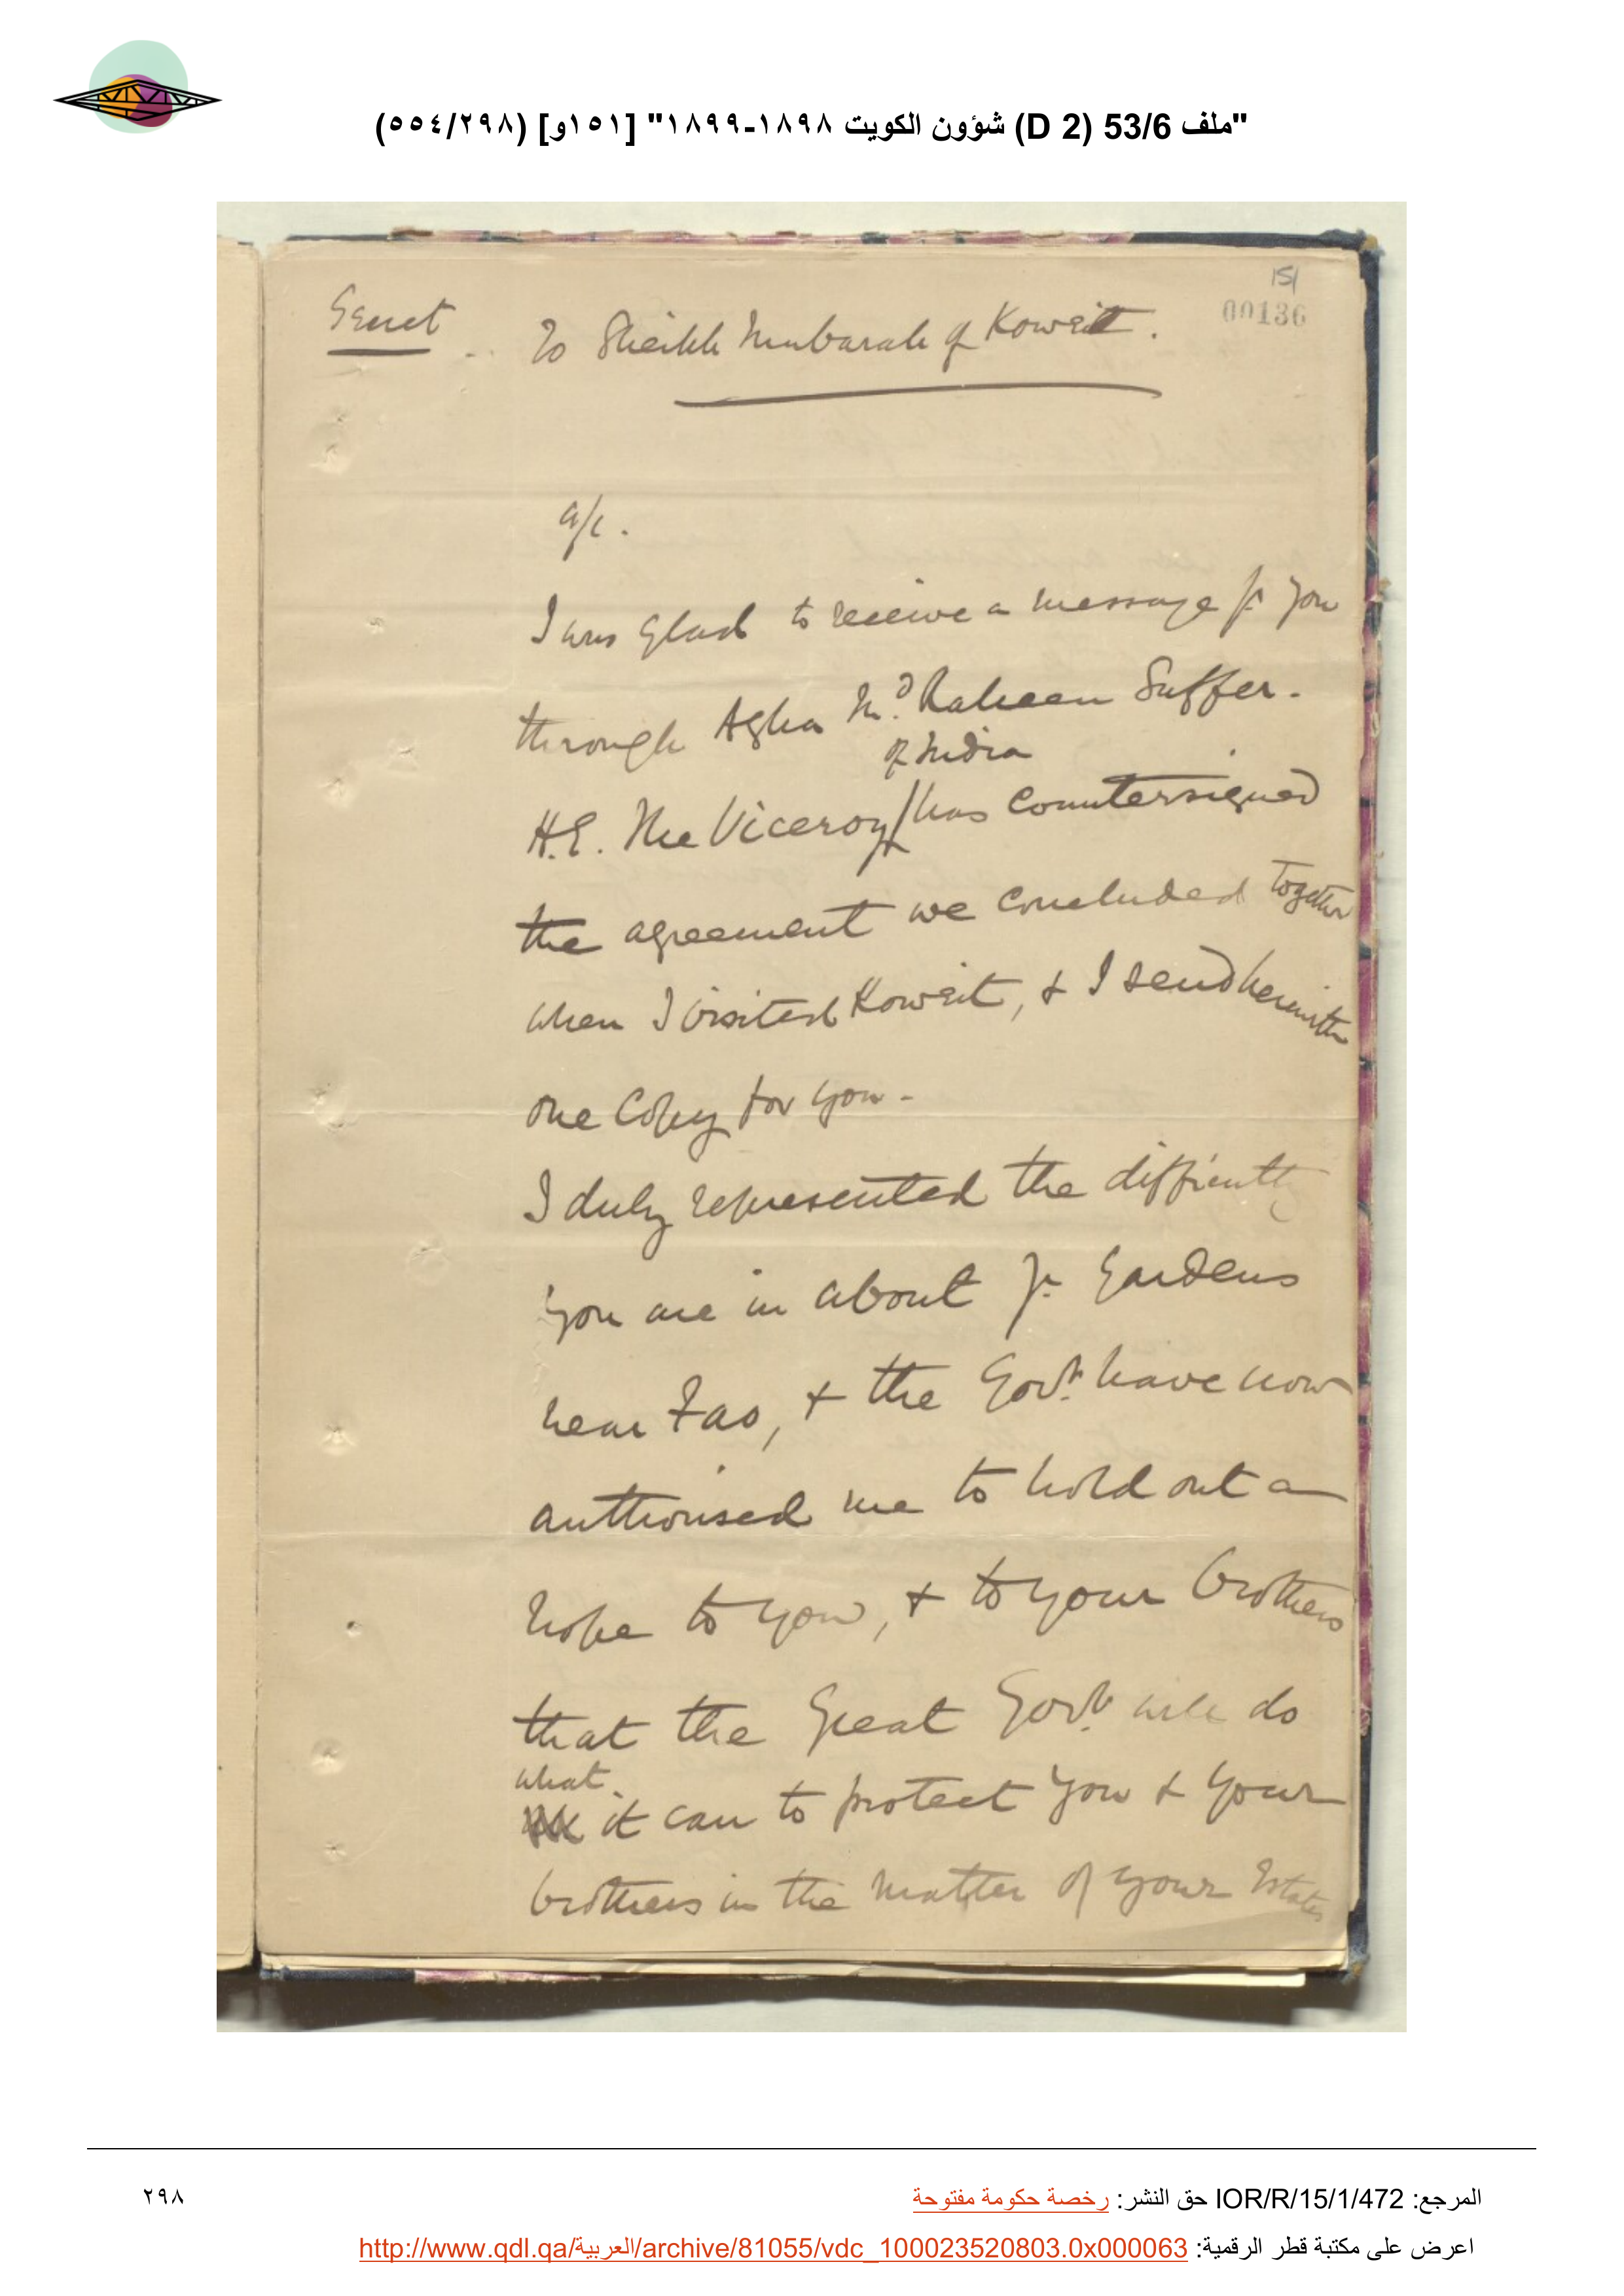 "ملف 53/6 (D 2) شؤون الكويت ١٨٩٨-١٨٩٩" [١٥١و] (٥٥٤/٢٩٨)
151
00136
Secret
To Sheikh Mubarak of Koweit.
a/c.
I was glad to receive a message fr you
through Agha Md. Raheem Suffer.
of India
H.E. The Viceroy/has countersigned
the agreement we concluded together
when I visited Koweit, & I send herewith
one Copy for you-
I duly represented the difficulty
you are in about yr. Gardens
near Fao, & the Govt. have now
authorised me to hold out a
hope to you, & to your brothers
that the Great Govt. will do
what
it can to protect you & your
brothers in the matter of your Estates
المرجع: IOR/R/15/1/472 حق النشر: رخصة حكومة مفتوحة
٢٩٨
اعرض على مكتبة قطر الرقمية: http://www.qdl.qa/العربية/archive/81055/vdc_100023520803.0x000063